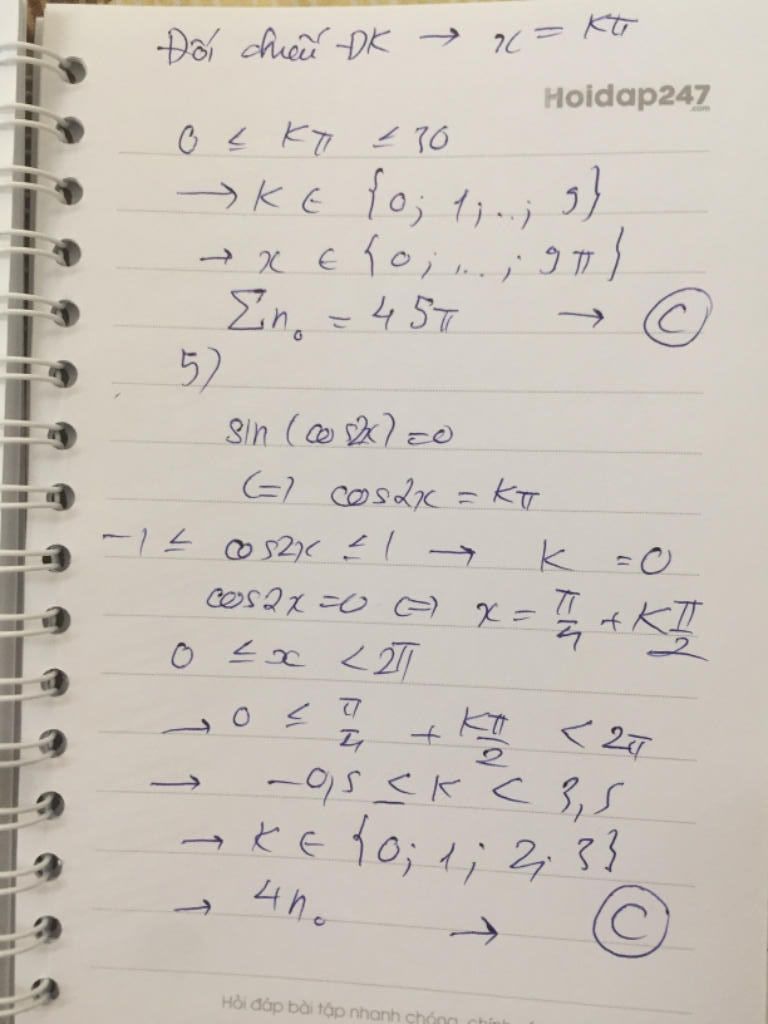 Đối chiếu ĐK → x = kπ
Hoidap247
.com
0 ≤ kπ ≤ 30
→ k ∈ {0; 1; ..; 9}
→ x ∈ {0; ...; 9π}
∑n₀ = 45π → C
5)
sin (cos2x) = 0
(=) cos2x = kπ
-1 ≤ cos2x ≤ 1 → k = 0
cos2x = 0 (=) x = π/4 + kπ/2
0 ≤ x < 2π
→ 0 ≤ π/4 + kπ/2 < 2π
→ -0,5 ≤ k < 3,5
→ k ∈ {0; 1; 2; 3}
→ 4n₀ → C
Hỏi đáp bài tập nhanh chóng, chính